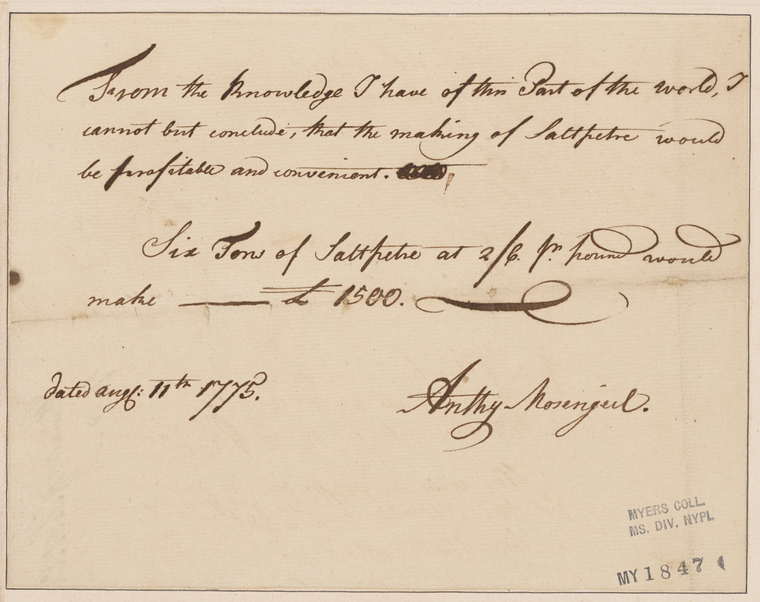 From the knowledge I have of this Part of the world, I
cannot but conclude, that the making of Saltpetre would
be profitable and convenient.
Six Tons of Saltpetre at 2/6. pr. pound would
make —— £ 1500.
dated augt: 11th 1775.
Anthy Mosengeil.
MYERS COLL.
MS. DIV. NYPL
MY 1847